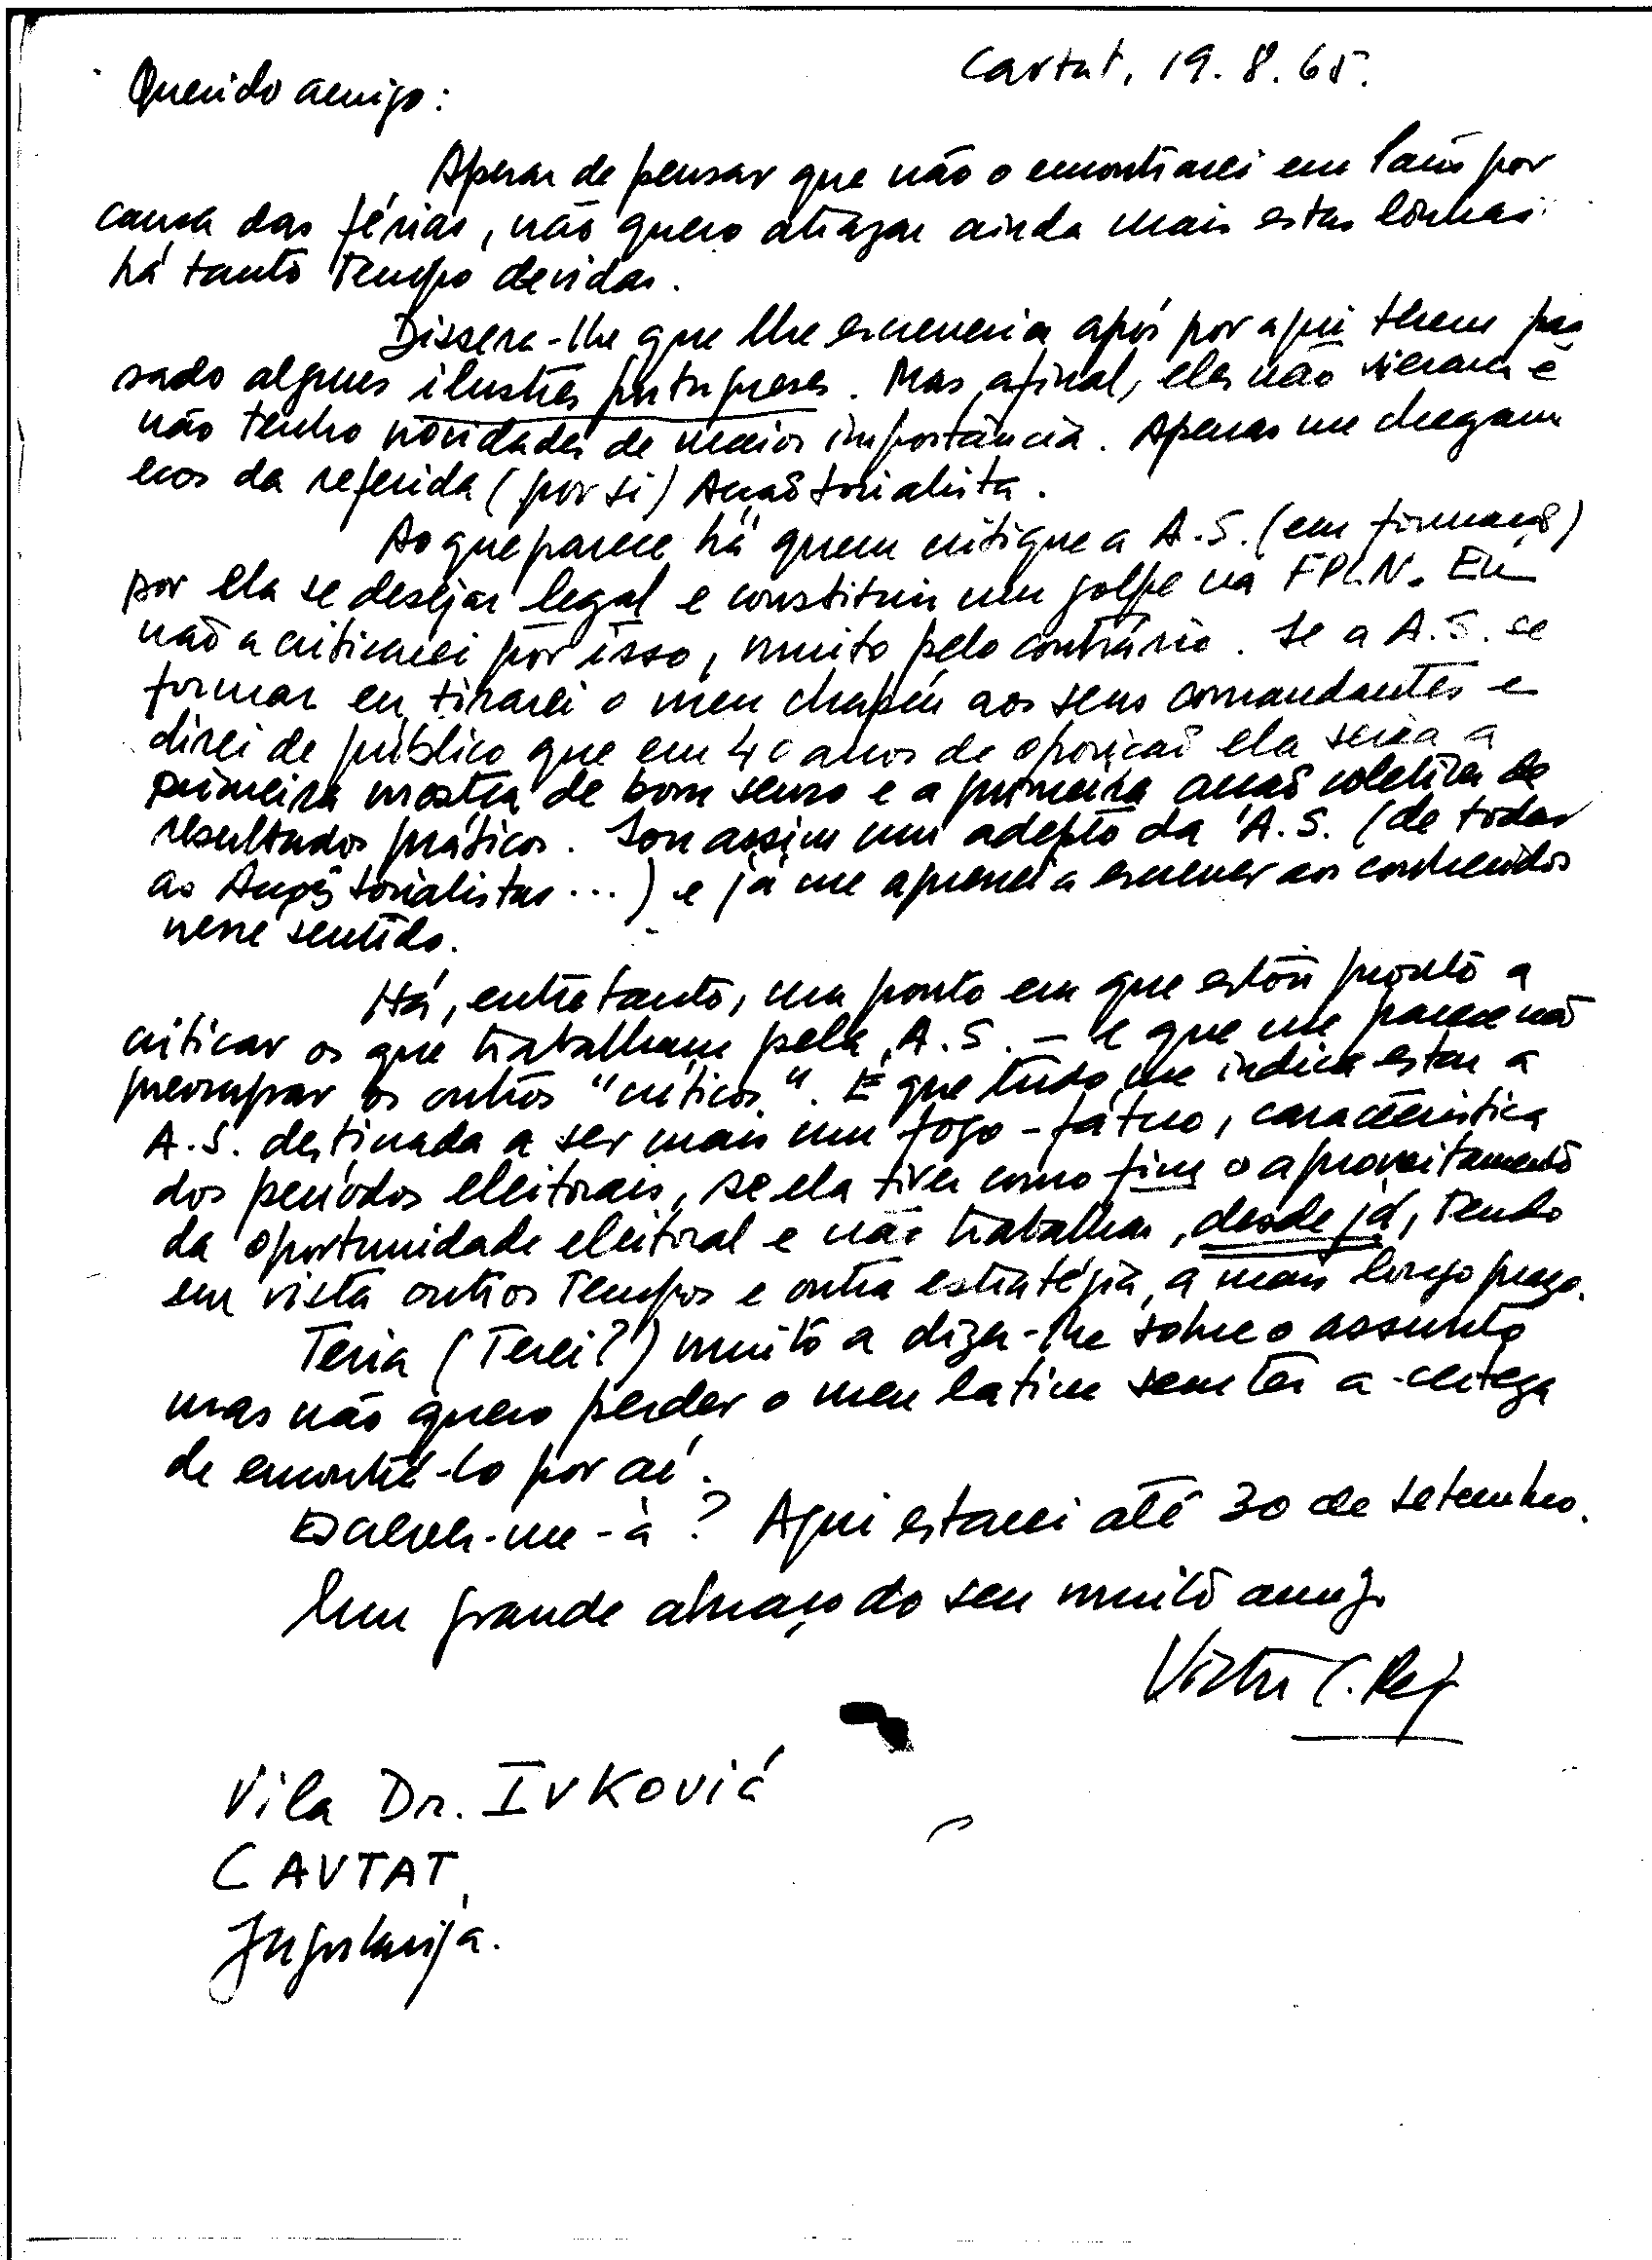 Cavtat, 19.8.65.
Querido amigo:
Apesar de pensar que não o encontrarei em Paris por
causa das férias, não quero atrazar ainda mais estas linhas
há tanto tempo devidas.
Dissera-lhe que lhe escreveria após por aqui terem pas
sado alguns ilustres portugueses. Mas, afinal, eles não vieram e
não tenho novidades de maior importância. Apenas me chegam
ecos da referida (por si) Acção Socialista.
Ao que parece há quem critique a A.S. (em formação)
por ela se desejar legal e constituir um golpe na FPLN. Eu
não a criticarei por isso, muito pelo contrário. Se a A.S. se
formar eu tirarei o meu chapéu aos seus comandantes e
direi de público que em 40 anos de oposição ela seria a
primeira mostra de bom senso e a primeira acção coletiva de
resultados práticos. Sou assim um adepto da A.S. (de todas
as Acções Socialistas...) e já me apressei a escrever aos conhecidos
nesse sentido.
Há, entretanto, um ponto em que estou pronto a
criticar os que trabalham pela A.S. – e que me parece não
preocupar os outros "críticos". É que tudo me indica estar a
A.S. destinada a ser mais um fogo-fátuo, característica
dos períodos eleitorais, se ela tiver como fim o aproveitamento
da oportunidade eleitoral e não trabalhar, desde já, tendo
em vista outros tempos e outra estratégia, a mais longo prazo.
Teria (Terei?) muito a dizer-lhe sobre o assunto
mas não quero perder o meu latim sem ter a certeza
de encontrá-lo por aí.
Escrever-me-á? Aqui estarei até 30 de setembro.
Um grande abraço do seu muito amigo
Victor C. Reis
Vila Dr. IVKović
CAVTAT,
Jugoslavija.